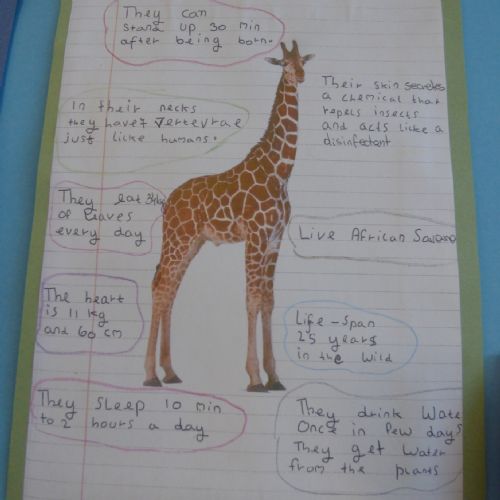 They can
stand up 30 min
after being born.
Their skin secretes
a chemical that
repels insects
and acts like a
disinfectent
In their necks
they have 7 vertevrae
just like humans.
They eat 34kg
of leaves
every day
Live African Savanna
The heart
is 11 kg
and 60 cm
Life-span
25 years
in the wild
They sleep 10 min
to 2 hours a day
They drink Wate
Once in Pew days
They get water
from the plants